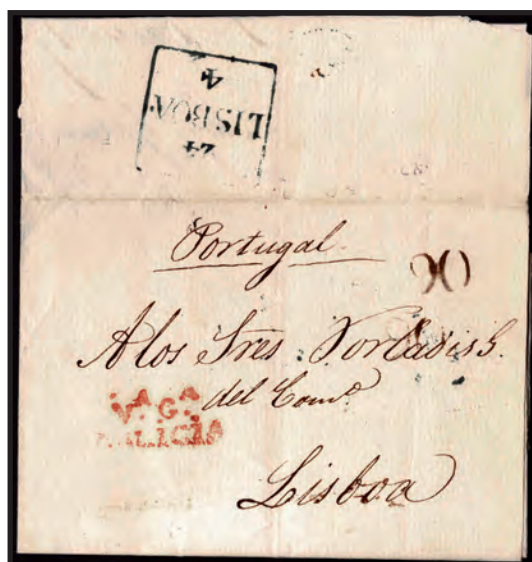 24
LISBOA
4
Portugal
90
A los Sres.
del Comº
V.A G.A
GALICIA
Lisboa